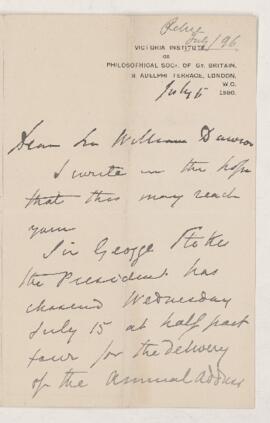 July / 96
VICTORIA INSTITUTE,
OR
PHILOSOPHICAL SOCY. OF GT. BRITAIN.
8 ADELPHI TERRACE, LONDON,
W.C.
July 5 1896.
Dear Sir William Dawson
I write in the hope
that this may reach
you
Sir George Stokes
the President has
Wednesday
July 15 at half past
four for the delivery
of the Annual Address